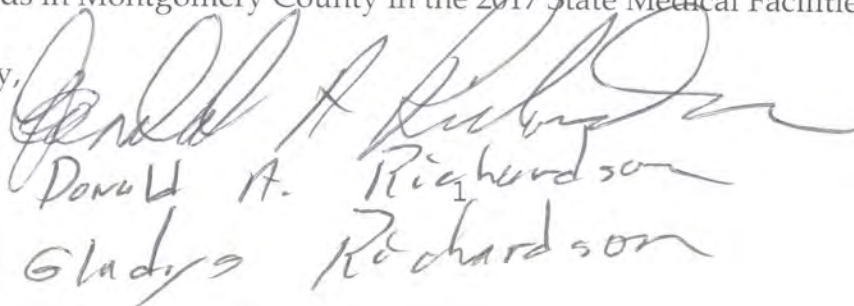 ds in Montgomery County in the 2017 State Medical Facilitie
y,
Donald A Richardson
Donald A. Richardson
1
Gladys Richardson